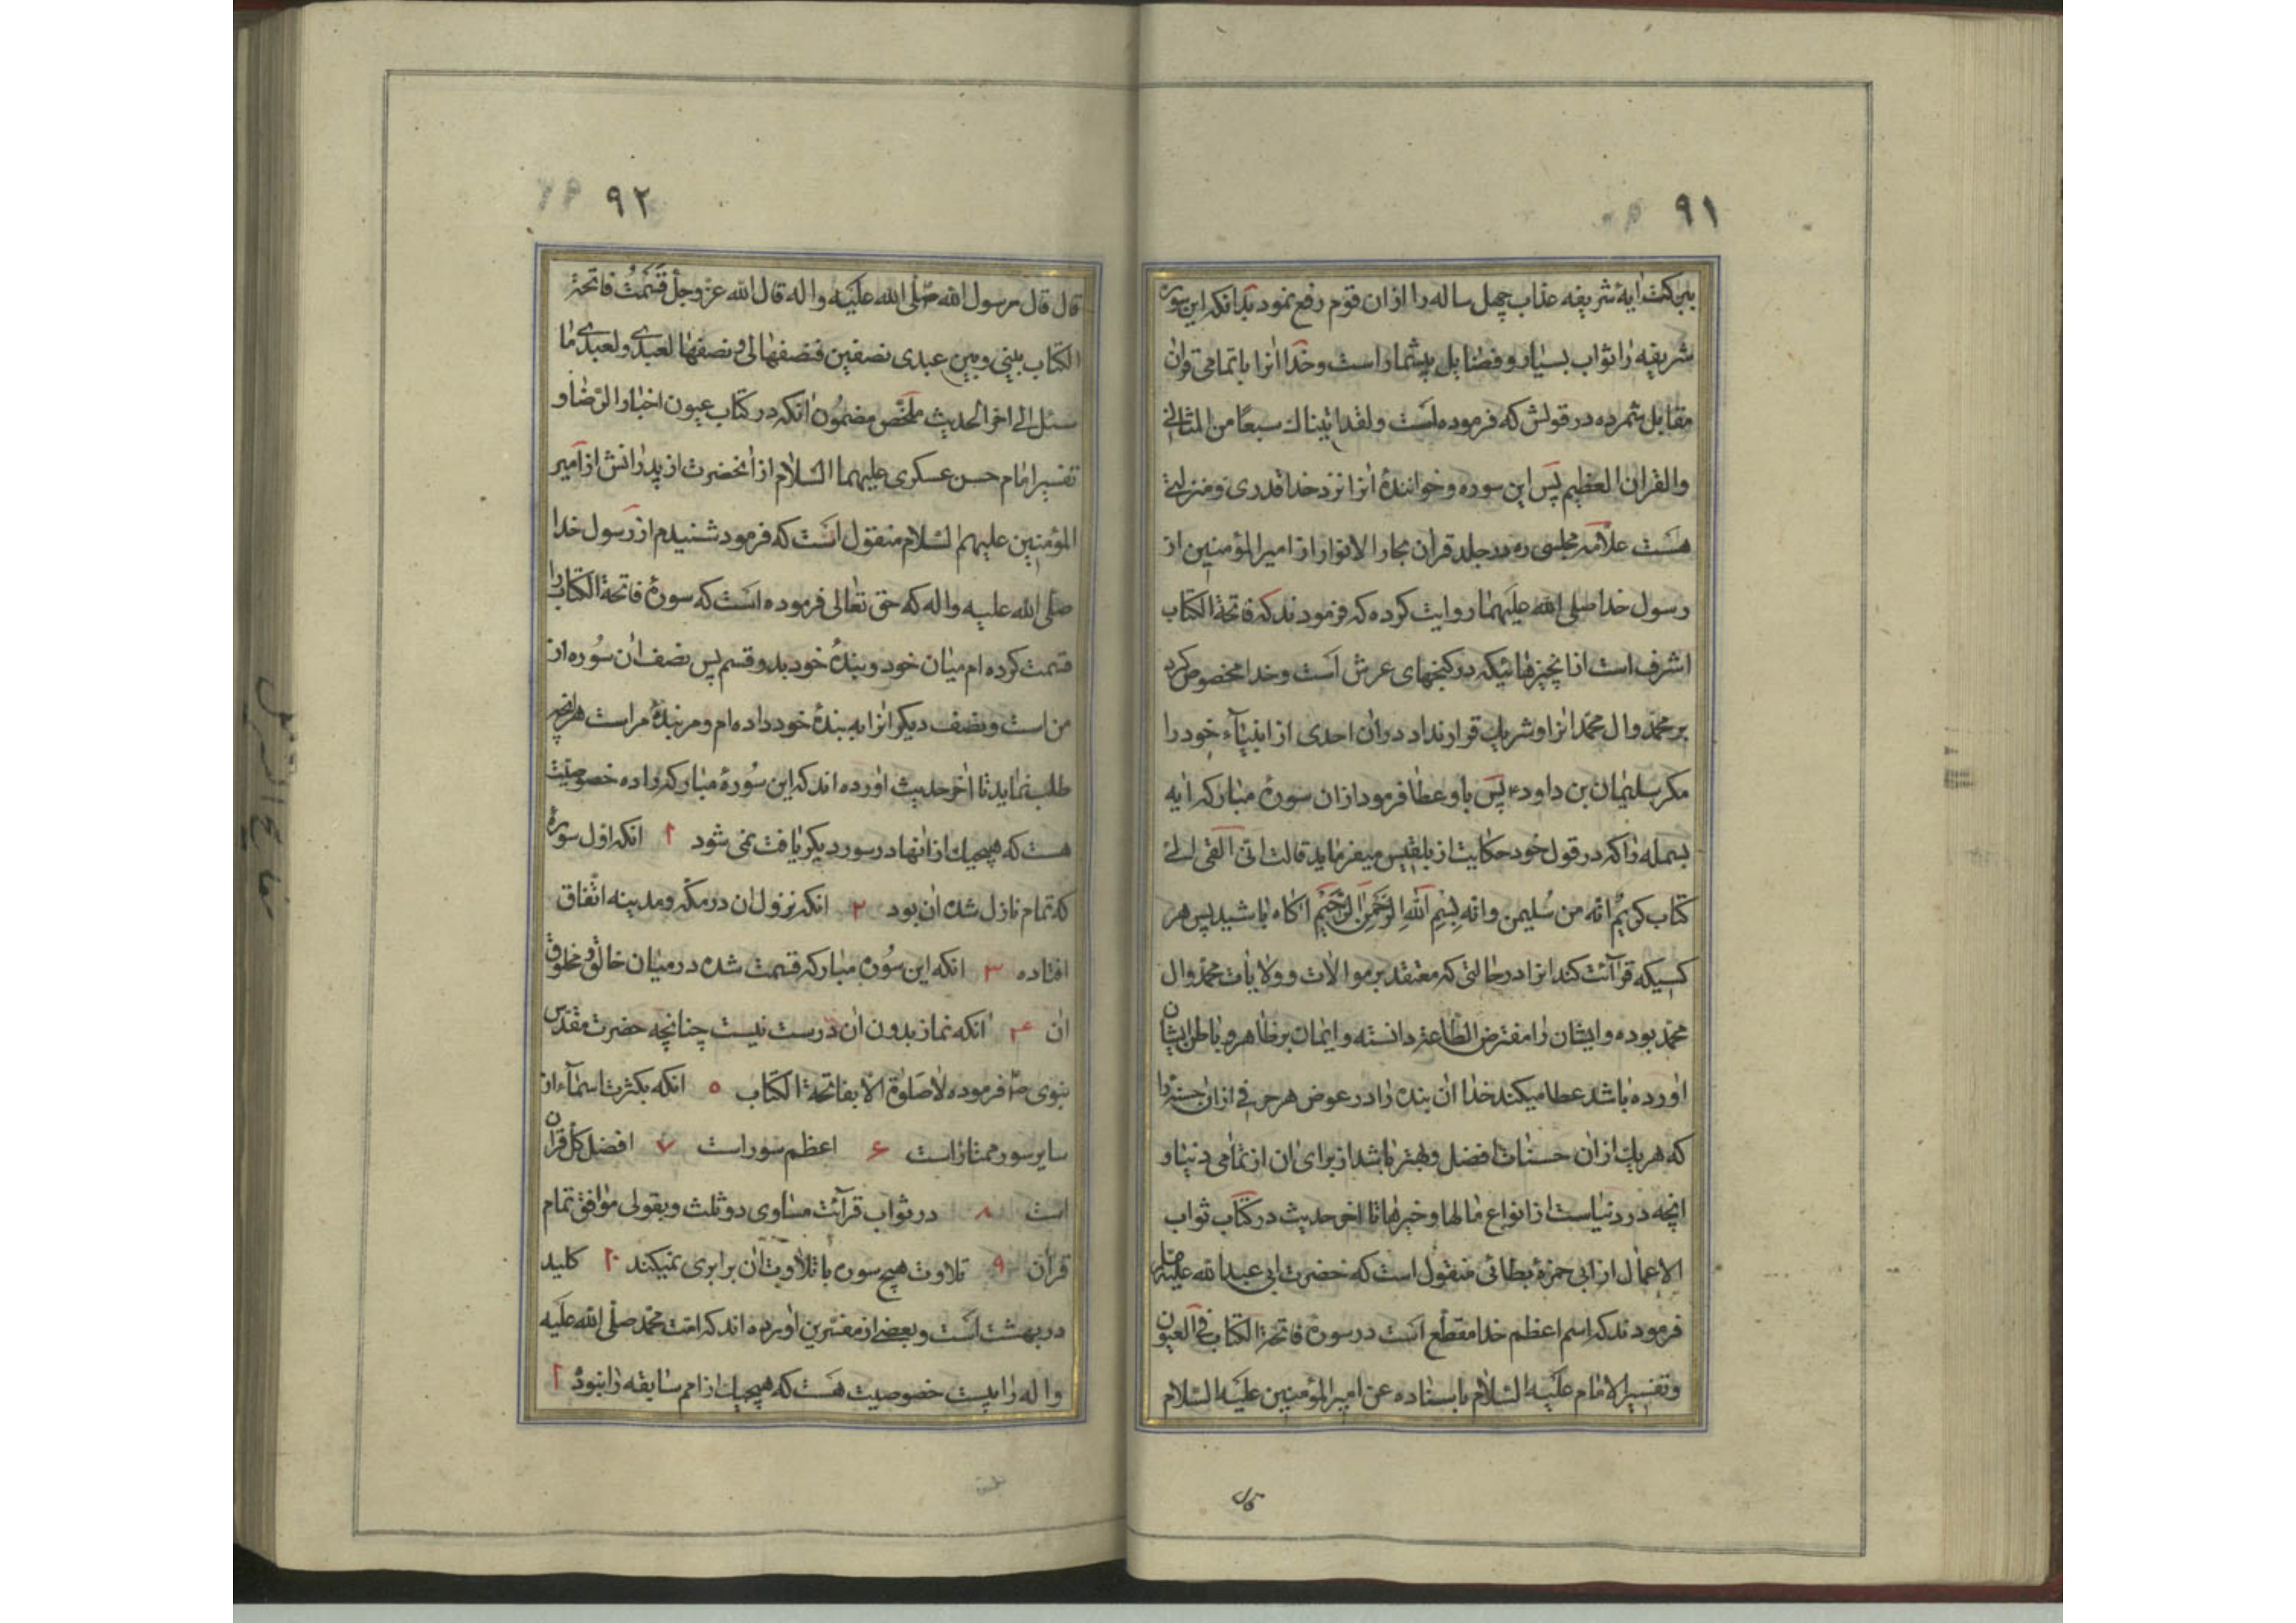 ۹۱
ببرکت ایهٔ شریفه عذاب چهل ساله را ازان قوم رفع نمود بدانکه این سورهٔ
شریفه را ثواب بسیار و فضایل بیشمار است و خدا انرا با تمامی قران
مقابل شمرده در قولش که فرموده است ولقد اتیناك سبعًا من المثانی
والقران العظیم پس این سوره و خوانندهٔ انرا نزد خدا قدری و منزلتی
هست علامهٔ مجلسی ره در جلد قران بحار الانوار از امیرالمؤمنین از
رسول خدا صلی الله علیهما روایت کرده که فرمودند که فاتحة الکتاب
اشرف است از انچیزهائیکه در کنجهای عرش است و خدا مخصوص کرد
بر محمد و ال محمد انرا و شریك قرار نداد دران احدی از انبیآء خود را
مکر سلیمان بن داود ع پس باو عطا فرمود ازان سورهٔ مبارکه ایه
بسمله را که در قول خود حکایت از بلقیس میفرماید قالت انی القی الی
کتاب کریم انه من سلیمن وانه بِسْمِ اللهِ الرَّحْمنِ الرَّحیمِ اکاه باشید پس هر
کسیکه قرآئت کند انرا در حالتی که معتقد بر موالات و ولایات محمد و ال
محمد بوده و ایشان را مفترض الطاعة دانسته و ایمان بر ظاهر و باطن ایشان
اورده باشد عطا میکند خدا ان بنده را در عوض هر حرفی ازان حسنهٔ را
که هر یك ازان حسنات افضل و بهتر باشد از برای ان از تمامی دنیا و
انچه در دنیاست از انواع مالها و خیرها تا اخر حدیث در کتاب ثواب
الاعمال از ابی حمزهٔ بطائنی منقول است که حضرت ابی عبدالله علیه
فرمودند که اسم اعظم خدا مقطّع است در سورهٔ فاتحة الکتاب فی العیون
وتفسیر الامام علیه السلام باسناده عن امیرالمؤمنین علیه السلام
قال
۹۲
قال قال رسول الله صلی الله علیه واله قال الله عز وجل قَسَمْتُ فاتحة
الکتاب بینی وبین عبدی نصفین فنصفها لی ونصفها لعبدی ولعبدی ما
سئل الی اخر الحدیث ملخّص مضمون انکه در کتاب عیون اخبار الرضا و
تفسیر امام حسن عسکری علیهما السلام از انحضرت از پدرانش از امیر
المؤمنین علیهم السلام منقول است که فرمود شنیدم از رسول خدا
صلی الله علیه واله که حق تعالی فرموده است که سورهٔ فاتحة الکتاب را
قسمت کرده ام میان خود و بندهٔ خود بدو قسم پس نصف ان سوره از
من است و نصف دیکر انرا به بندهٔ خود داده ام و مر بندهٔ مراست هر انچه
طلب نماید تا اخر حدیث اورده اند که این سورهٔ مبارکه را ده خصوصیت
هست که هیچیك از انها در سور دیکر یافت نمی شود ۱ انکه اول سورهٔ
که تمام نازل شده ان بود ۲ انکه نزول ان در مکه و مدینه اتفاق
افتاده ۳ انکه این سورهٔ مبارکه قسمت شده در میان خالق و مخلوق
ان ۴ انکه نماز بدون ان درست نیست چنانچه حضرت مقدس
نبوی ص فرموده لا صلوة الا بفاتحة الکتاب ۵ انکه بکثرت اسمآء از
سایر سور ممتاز است ۶ اعظم سور است ۷ افضل کل قران
است ۸ در ثواب قرآئت مساوی دو ثلث و بقولی موافق تمام
قران ۹ تلاوت هیچ سوره با تلاوت ان برابری نمیکند ۱۰ کلید
در بهشت است و بعضی از مفسرین اورده اند که امت محمد صلی الله علیه
واله را بیست خصوصیت هست که هیچیك از امم سابقه را نبود ۱